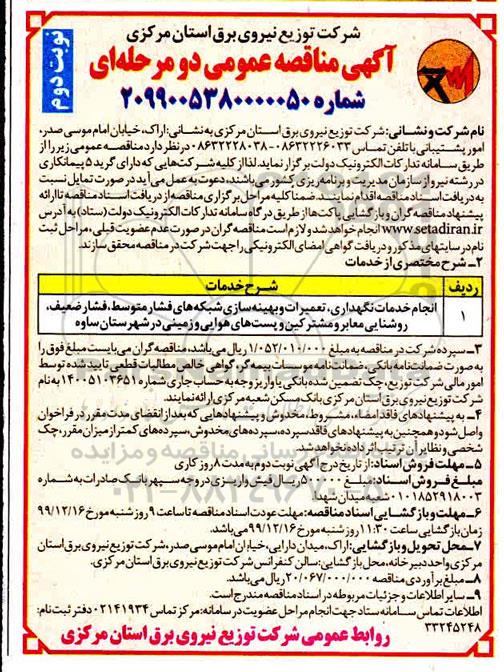 شرکت توزیع نیروی برق استان مرکزی
آگهی مناقصه عمومی دو مرحله‌ای
شماره ۲۰۹۹۰۰۵۳۸۰۰۰۰۰۵۰
نوبت دوم
نام شرکت و نشانی: شرکت توزیع نیروی برق استان مرکزی به نشانی: اراک، خیابان امام موسی صدر،
امور پشتیبانی با تلفن تماس ۰۸۶۳۲۲۲۶۰۳۳-۰۸۶۳۲۲۲۸۰۳۸ در نظر دارد مناقصه عمومی زیر را از
طریق سامانه تدارکات الکترونیک دولت برگزار نماید. لذا از کلیه شرکت‌هایی که دارای گرید ۵ پیمانکاری
در رشته نیرو از سازمان مدیریت و برنامه ریزی کشور می‌باشند، دعوت به عمل می‌آید در صورت تمایل نسبت
به دریافت اسناد مناقصه اقدام نمایند. ضمنا کلیه مراحل برگزاری مناقصه از دریافت اسناد مناقصه تا ارائه
پیشنهاد مناقصه گران و بازگشایی پاکت‌ها از طریق درگاه سامانه تدارکات الکترونیک دولت (ستاد) به آدرس
www.setadiran.ir انجام خواهد شد و لازم است مناقصه گران در صورت عدم عضویت قبلی، مراحل ثبت
نام در سایتهای مذکور و دریافت گواهی امضای الکترونیکی را جهت شرکت در مناقصه محقق سازند.
۲- شرح مختصری از خدمات
ردیف شرح خدمات
۱ انجام خدمات نگهداری، تعمیرات و بهینه سازی شبکه‌های فشار متوسط، فشار ضعیف،
روشنایی معابر و مشترکین و پست‌های هوایی و زمینی در شهرستان ساوه
۳- سپرده شرکت در مناقصه به مبلغ ۱/۰۵۲/۰۱۰/۰۰۰ ریال می‌باشد. مناقصه گران می‌بایست مبلغ فوق را
به صورت ضمانت نامه بانکی، ضمانت نامه موسسات بیمه گر، گواهی خالص مطالبات قطعی تایید شده توسط
امور مالی شرکت توزیع، چک تضمین شده بانکی یا واریز وجه به حساب جاری شماره ۱۴۰۰۵۱۰۳۶۵۱ به نام
شرکت توزیع نیروی برق استان مرکزی بانک مسکن شعبه مرکزی ارائه نمایند.
۴- به پیشنهادهای فاقد امضاء، مشروط، مخدوش و پیشنهادهایی که بعد از انقضای مدت مقرر در فراخوان
واصل شود و همچنین به پیشنهادهای فاقد سپرده، سپرده‌های مخدوش، سپرده‌های کمتر از میزان مقرر، چک
شخصی و نظایر آن ترتیب اثر داده نخواهد شد.
۵- مهلت فروش اسناد: از تاریخ درج آگهی نوبت دوم به مدت ۸ روز کاری
مبلغ فروش اسناد: مبلغ ۵۰۰/۰۰۰ ریال فیش واریزی در وجه سپهر بانک صادرات به شماره
۰۱۰۱۸۵۲۹۱۸۰۰۳ شعبه میدان شهدا.
۶- مهلت و بازگشایی اسناد مناقصه: مهلت عودت اسناد مناقصه تا ساعت ۹ روز شنبه مورخ ۹۹/۱۲/۱۶
زمان بازگشایی ساعت ۱۱:۳۰ روز شنبه مورخ ۹۹/۱۲/۱۶ می‌باشد.
۷- محل تحویل و بازگشایی: اراک، میدان دارایی، خیابان امام موسی صدر، شرکت توزیع نیروی برق استان
مرکزی واحد دبیرخانه، محل بازگشایی: سالن کنفرانس شرکت توزیع نیروی برق استان مرکزی.
۸- مبلغ برآوردی مناقصه ۲۰/۰۶۷/۰۰۰/۰۰۰ ریال می‌باشد.
۹- سایر اطلاعات و جزئیات مربوطه در اسناد مناقصه مندرج است.
اطلاعات تماس سامانه ستاد جهت انجام مراحل عضویت در سامانه: مرکز تماس ۰۲۱۴۱۹۳۴ دفتر ثبت نام:
۳۳۲۴۵۲۴۸
روابط عمومی شرکت توزیع نیروی برق استان مرکزی